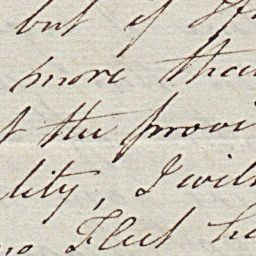 but if
more than
of the provi
lity, I will
no Fleet ha